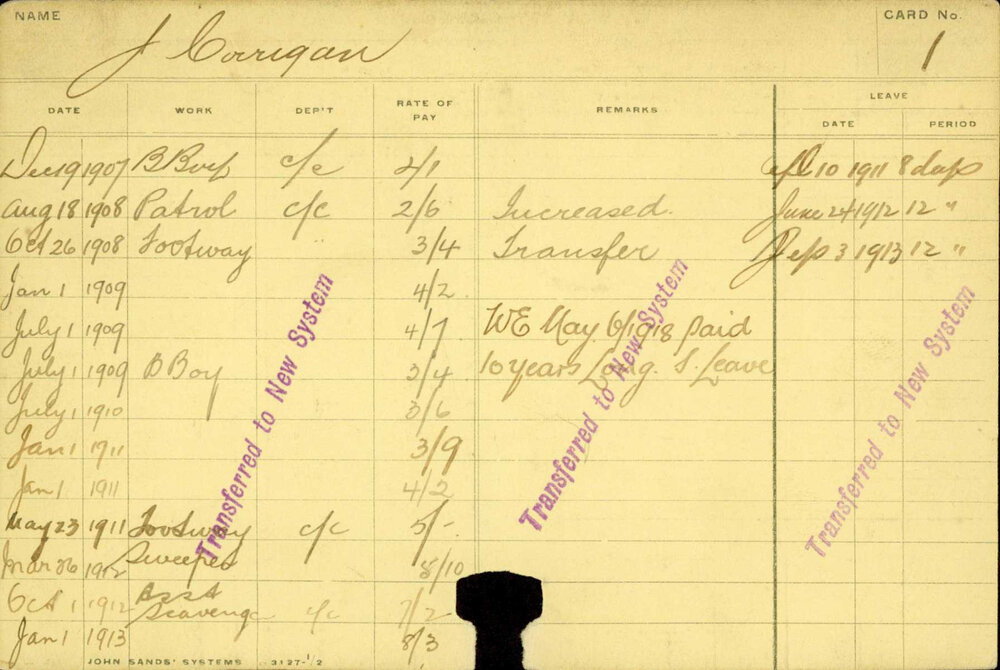 NAME
J Corrigan
CARD No.
1
DATE WORK DEP'T RATE OF PAY REMARKS LEAVE
DATE PERIOD
Dec 19 1907 B Boy c/c 2/1 10 1911 8 days
Aug 18 1908 Patrol c/c 2/6 Increased. June 24 1912 12 "
Oct 26 1908 Footway " 3/4 Transfer Sep 3 1913 12 "
Jan 1 1909 4/2
July 1 1909 4/7 WE May 6/1918 paid
July 1 1909 B Boy 3/4 10 years Long. S. Leave
July 1 1910 3/6
Jan 1 1911 3/9
Jan 1 1911 4/2
May 23 1911 Footway c/c 5/-
Mar 26 1912 Sweeper /10
Oct 1 1912 Asst Scavenge c/c 7/2
Jan 1 1913 8/3
Transferred to New System
Transferred to New System
Transferred to New System
JOHN SANDS' SYSTEMS 3127-1/2